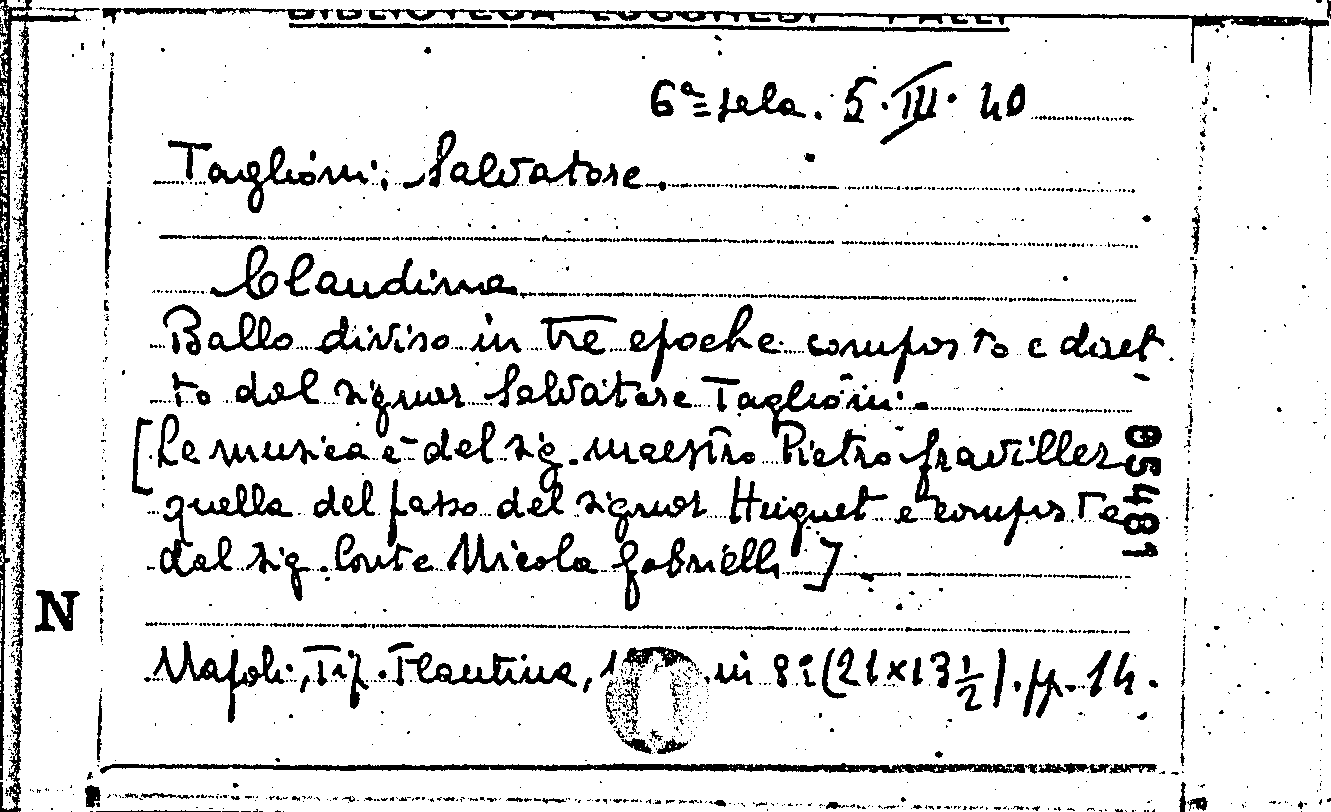 BIBLIOTECA LUCCHESI - PALLI
6ª sala. 5. III. 40
Taglioni, Salvatore.
Claudina
Ballo diviso in tre epoche composto e diret-
to dal signor Salvatore Taglioni.
[La musica è del sig. maestro Pietro Graviller
quella del passo del signor Huguet è composta
dal sig. Conte Nicola Gabrielli]
Napoli, Tip. Flautina, in 8º (21x13½). pp. 14.
05481
N